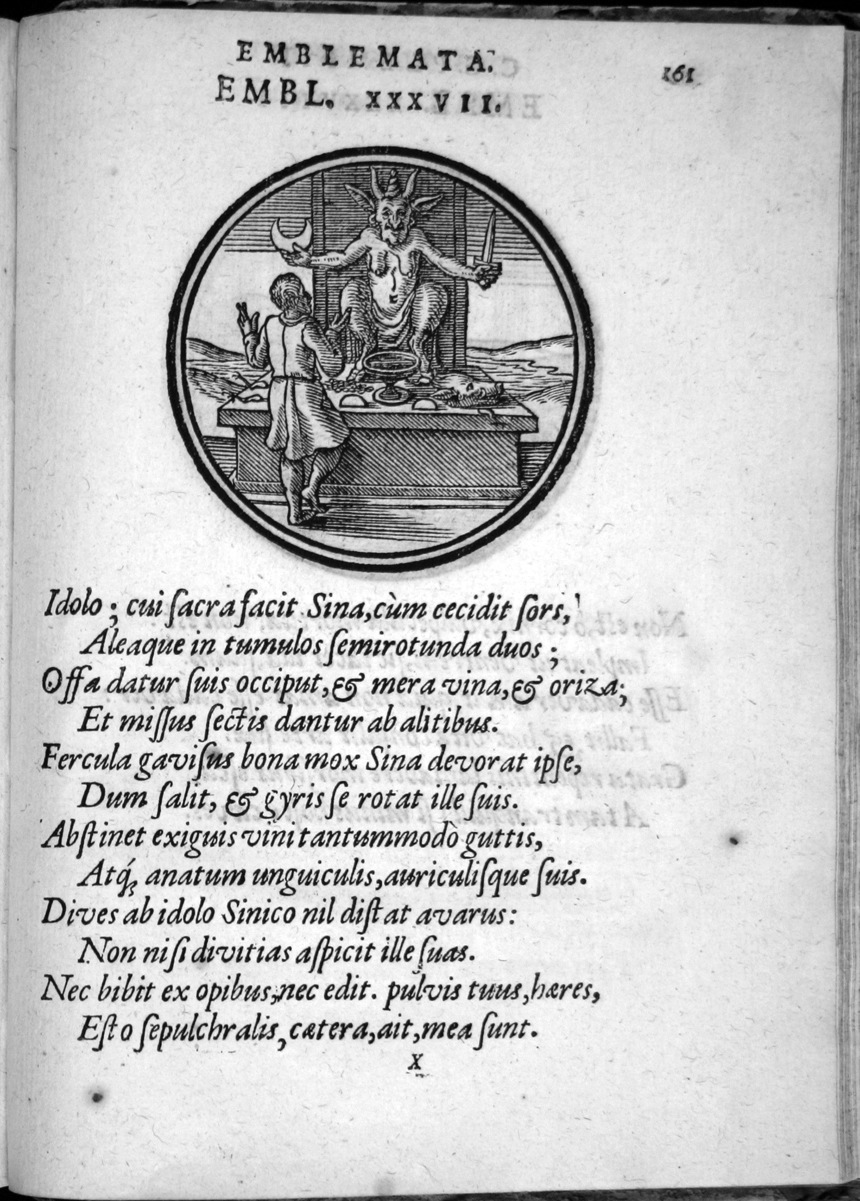 EMBLEMATA.
161
EMBL. XXXVII.
Idolo; cui ſacra facit Sina, cùm cecidit ſors,
Aleaque in tumulos ſemirotunda duos;
Offa datur ſuis occiput, & mera vina, & oriza;
Et miſſus ſectis dantur ab alitibus.
Fercula gaviſus bona mox Sina devorat ipſe,
Dum ſalit, & gyris ſe rotat ille ſuis.
Abſtinet exiguis vini tantummodò guttis,
Atq́; anatum unguiculis, auriculiſque ſuis.
Dives ab idolo Sinico nil diſtat avarus:
Non niſi divitias aſpicit ille ſuas.
Nec bibit ex opibus, nec edit. pulvis tuus, hæres,
Eſto ſepulchralis, cætera, ait, mea ſunt.
X